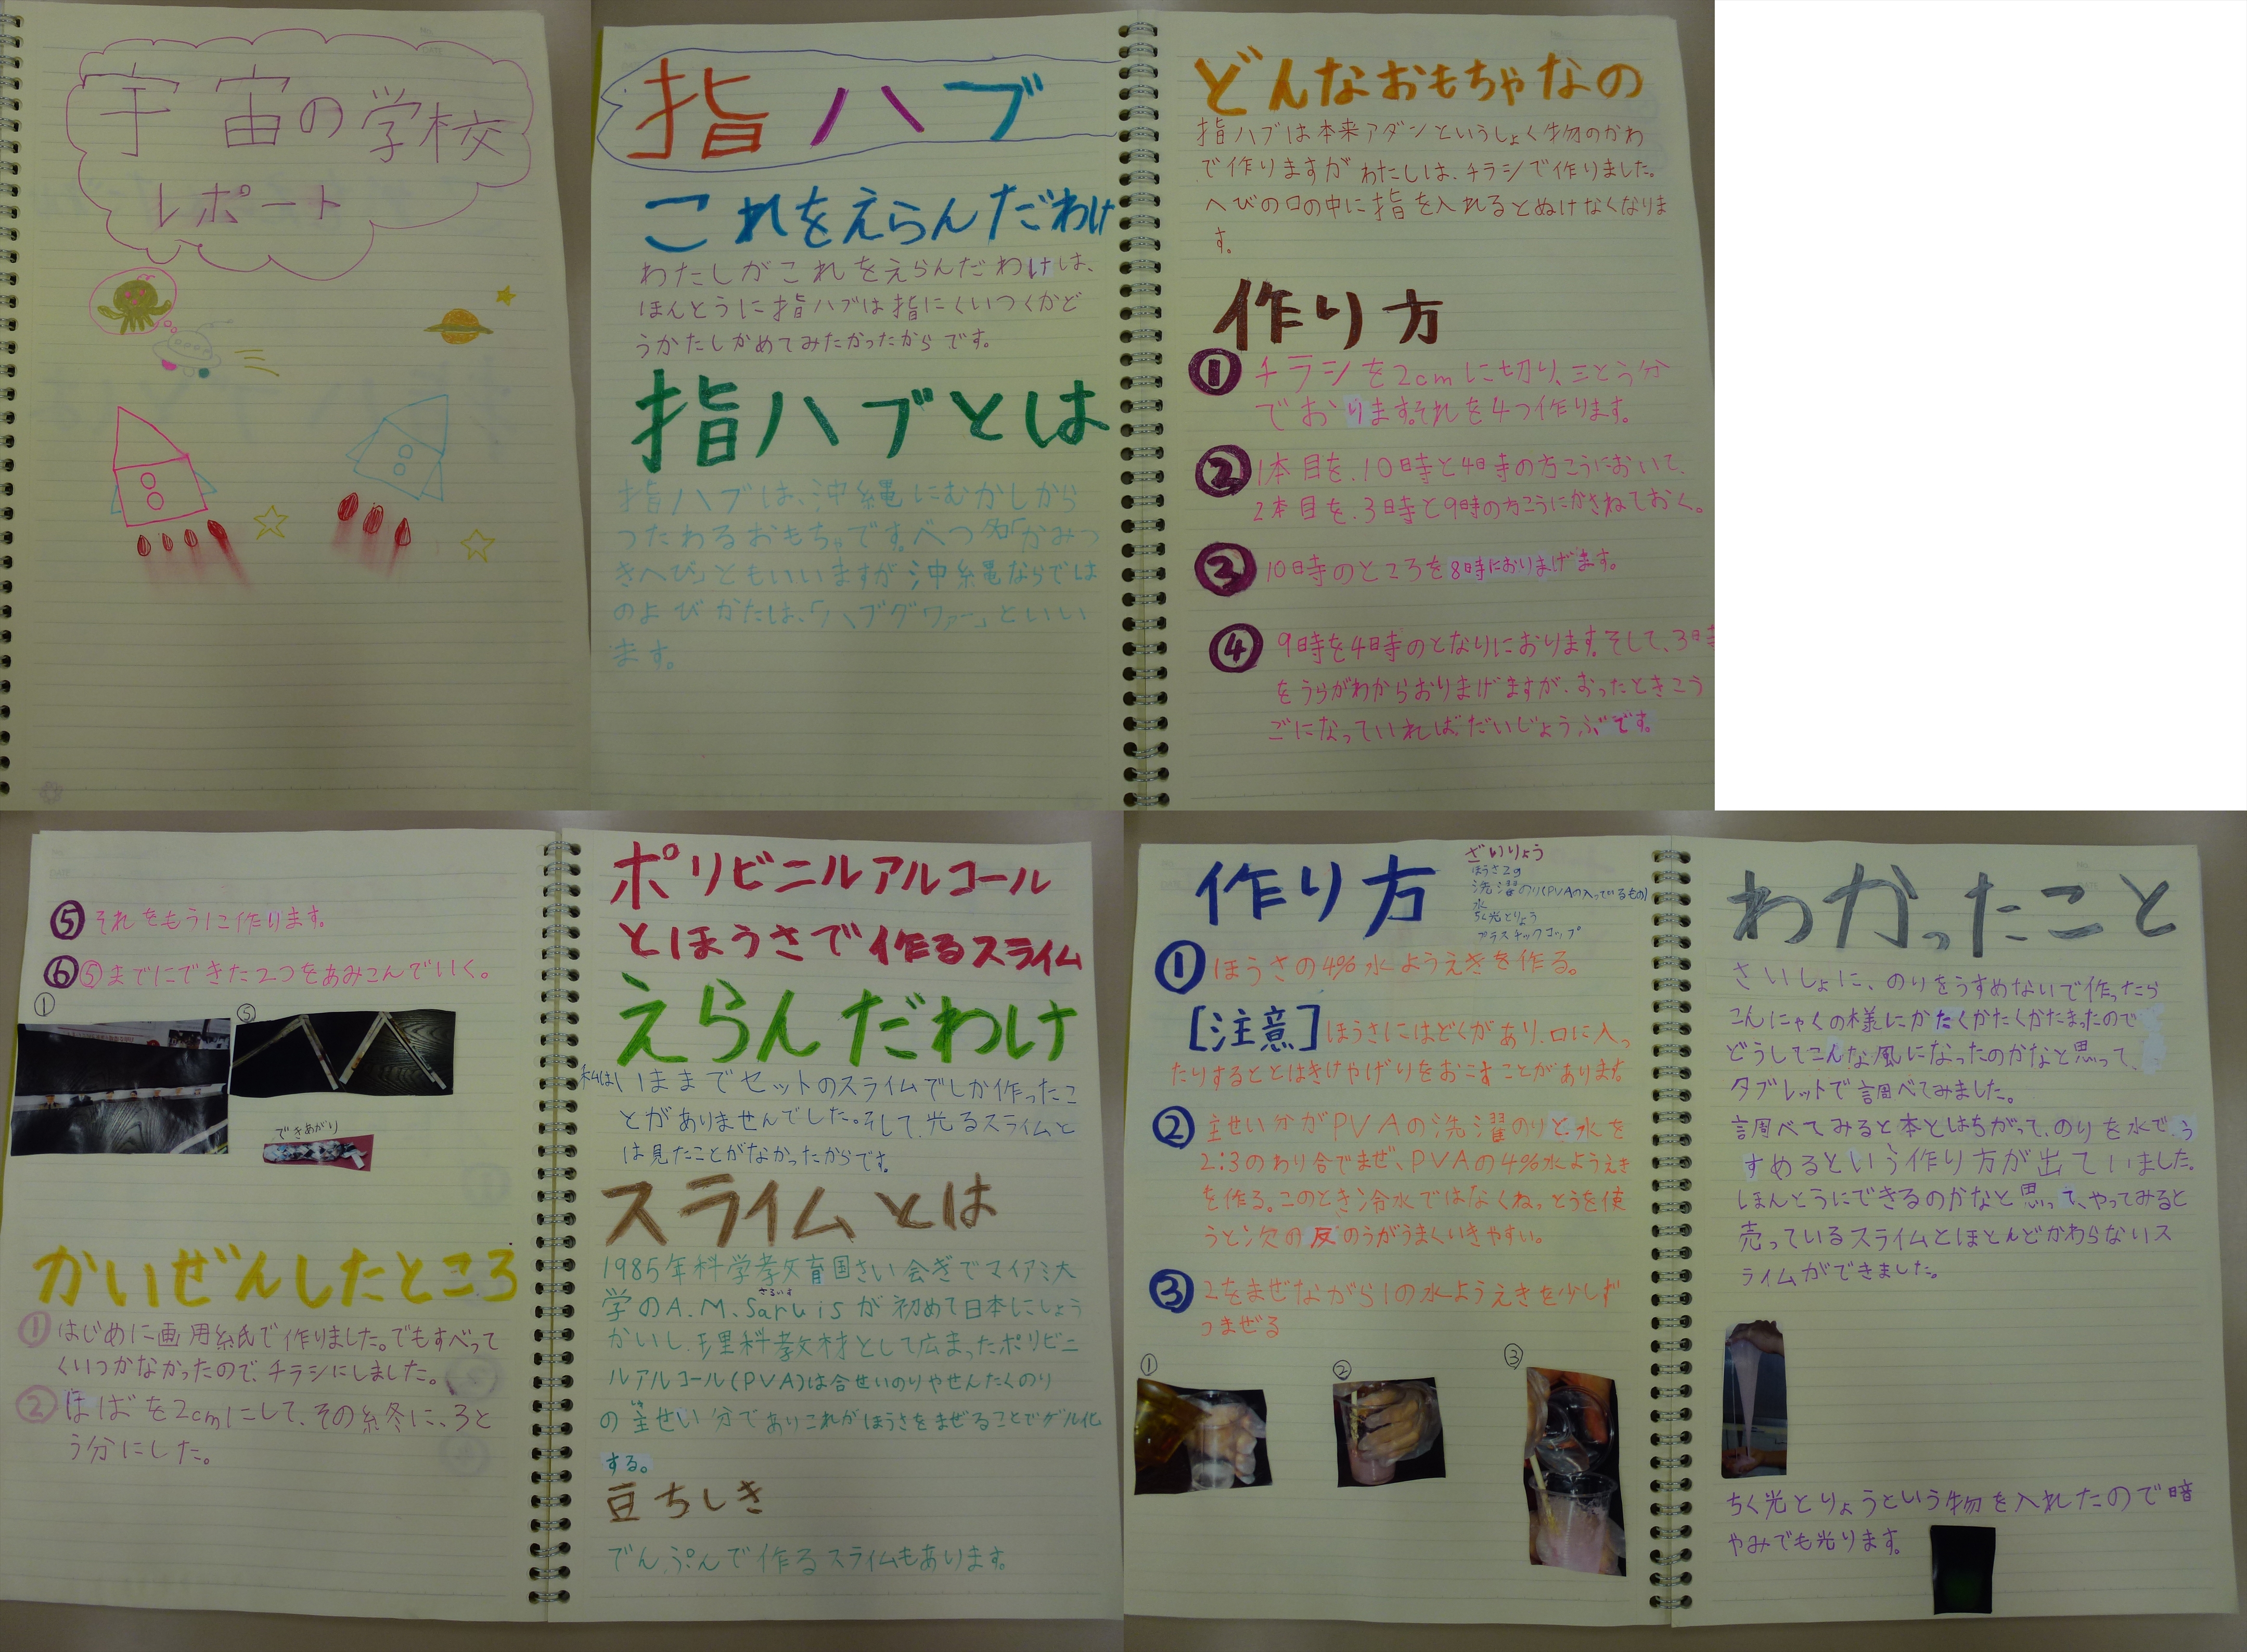 宇宙の学校
レポート
指ハブ
これをえらんだわけ
わたしがこれをえらんだわけは、
ほんとうに指ハブは指にくいつくかど
うかたしかめてみたかったからです。
指ハブとは
指ハブは、沖縄にむかしから
つたわるおもちゃです。べつ名「かみつ
きへび」ともいいますが沖縄ならでは
のよびかたは、「ハブグワァー」といい
ます。
どんなおもちゃなの
指ハブは本来アダンというしょく物のかわ
で作りますがわたしは、チラシで作りました。
へびの口の中に指を入れるとぬけなくなりま
す。
作り方
① チラシを2cmに切り、三とう分
でおります。それを4つ作ります。
② 1本目を、10時と4時の方こうにおいて、
2本目を、3時と9時の方こうにかさねておく。
③ 10時のところを8時におりまげます。
④ 9時を4時のとなりにおります。そして、3時
をうらがわからおりまげますが、おったときこう
ごになっていればだいじょうぶです。
⑤ それをもう1こ作ります。
⑥ ⑤までにできた2つをあみこんでいく。
①
⑤
できあがり
かいぜんしたところ
① はじめに画用紙で作りました。でもすべって
くいつかなかったので、チラシにしました。
② はばを2cmにして、その紙冬に、3と
う分にした。
ポリビニルアルコール
とほうさで作るスライム
えらんだわけ
私は、いままでセットのスライムでしか作ったこ
とがありませんでした。そして、光るスライムと
は見たことがなかったからです。
スライムとは
1985年科学教育国さい会ぎでマイアミ大
さるいす
学のA.M.Saruisが初めて日本にしょう
かいし、理科教材として広まったポリビニ
ルアルコール(PVA)は合せいのりやせんたくのり
の主せい分でありこれがほうさをまぜることでゲル化
する。
豆ちしき
でんぷんで作るスライムもあります。
作り方
ざいりょう
ほうさ2g
洗濯のり(PVAの入っているもの)
水
ちく光とりょう
プラスチックコップ
① ほうさの4%水ようえきを作る。
[注意]ほうさにはどくがあり、口に入っ
たりするととはきけやげりをおこすことがあります
② 主せい分がPVAの洗濯のりと、水を
2:3のわり合でまぜ、PVAの4%水ようえき
を作る。このとき冷水ではなくねっとうを使
うと次の反のうがうまくいきやすい。
③ 2をまぜながら1の水ようえきを少しず
つまぜる
①
②
③
わかったこと
さいしょに、のりをうすめないで作ったら
こんにゃくの様にかたくかたくかたまったので
どうしてこんな風になったのかなと思って、
タブレットで調べてみました。
調べてみると本とはちがって、のりを水で、う
すめるという作り方が出ていました。
ほんとうにできるのかなと思って、やってみると
売っているスライムとほとんどかわらないス
ライムができました。
ちく光とりょうという物を入れたので暗
やみでも光ります。